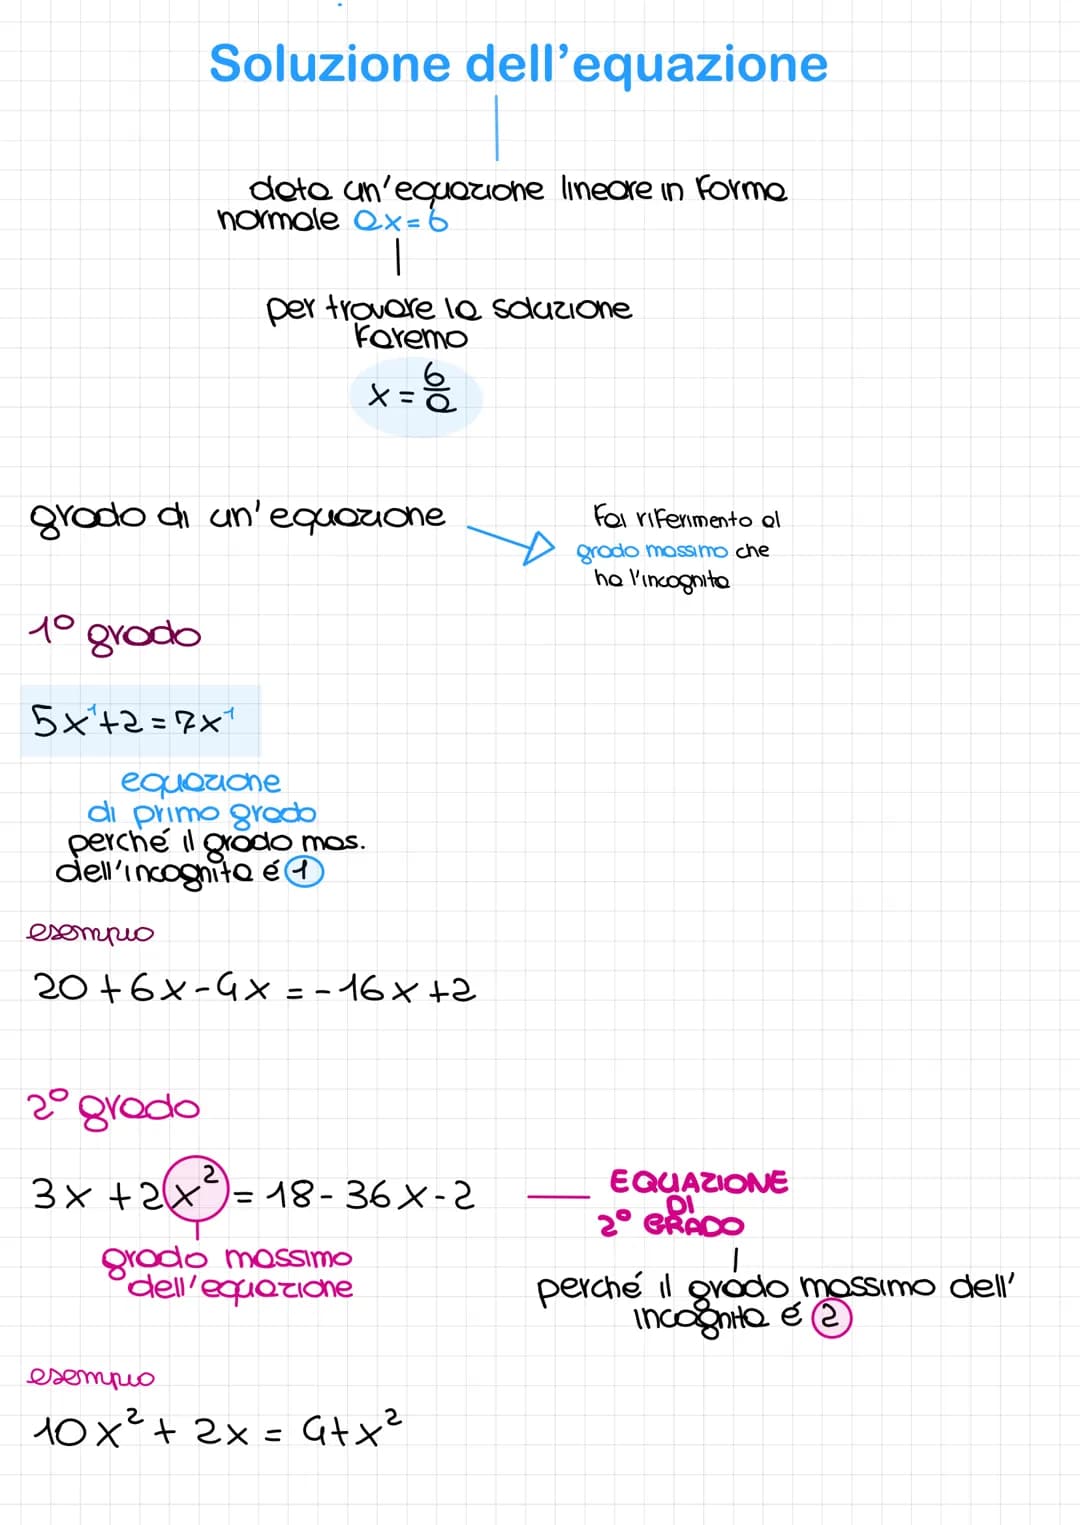 Soluzione dell'equazione
data un'equazione lineare in forma
normale ax=b
per trovare la soluzione
faremo
x = b/a
grado di un'equazione
fai riferimento al
grado massimo che
ha l'incognita
1° grado
5x¹+2=7x¹
equazione
di primo grado
perché il grado mas.
dell'incognita é 1
esempio
20+6x-4x=-16x+2
2° grado
3x+2x²=18-36x-2
EQUAZIONE
DI
2° GRADO
grado massimo
dell'equazione
perché il grado massimo dell'
incognita é 2
esempio
10x²+2x=4+x²